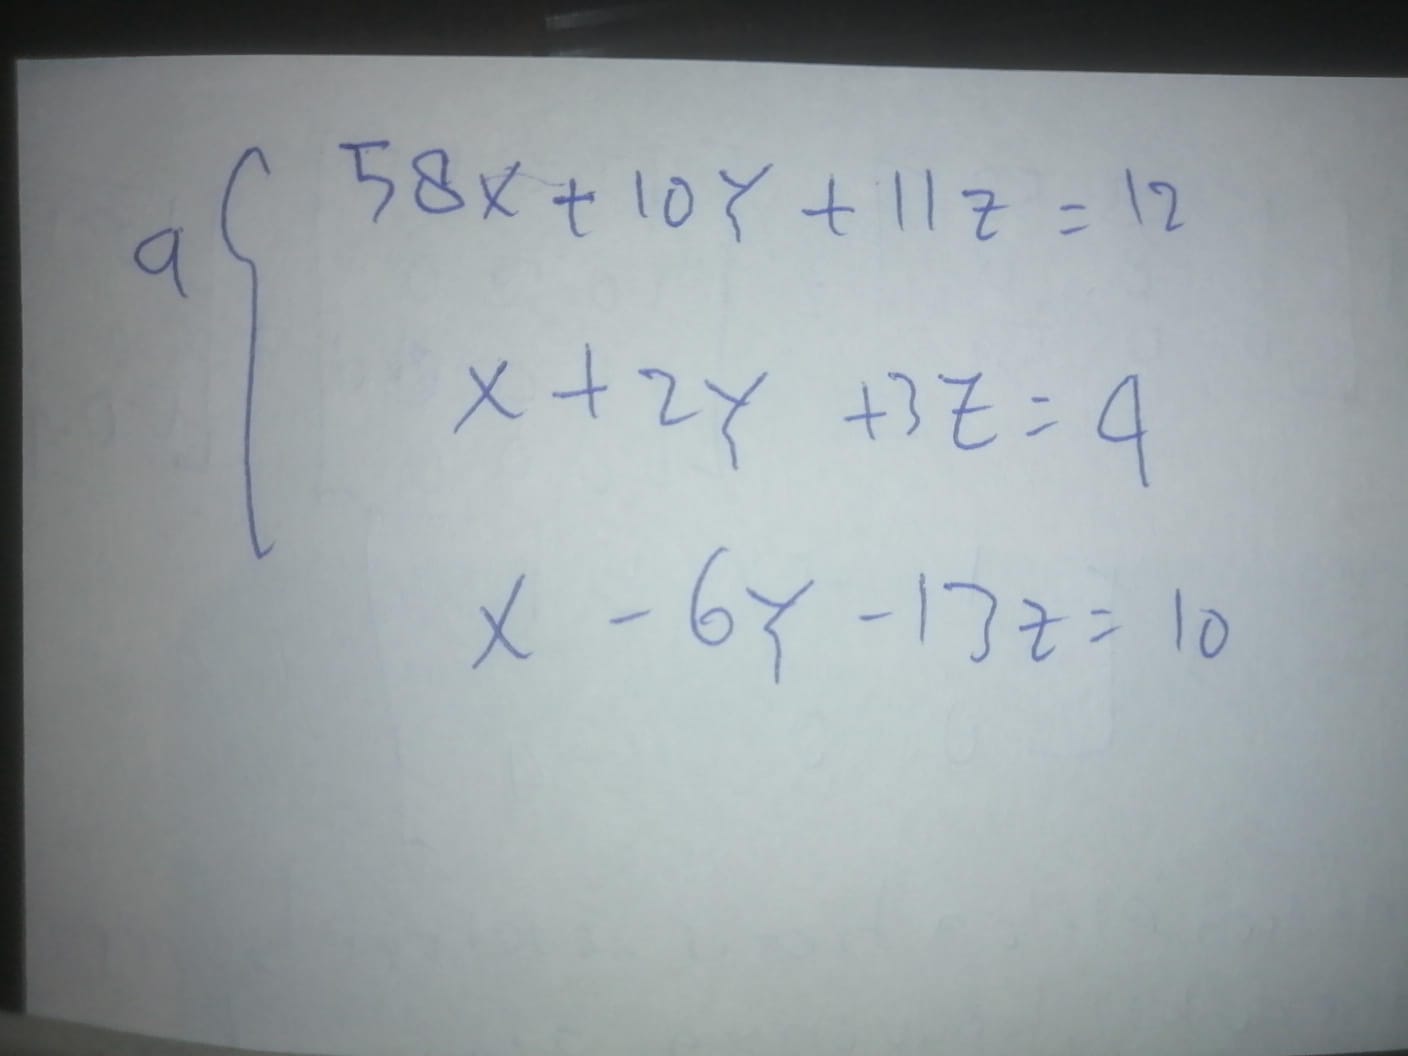 a { 58x + 10y + 11z = 12
x + 2y + 3z = 4
x - 6y - 13z = 10